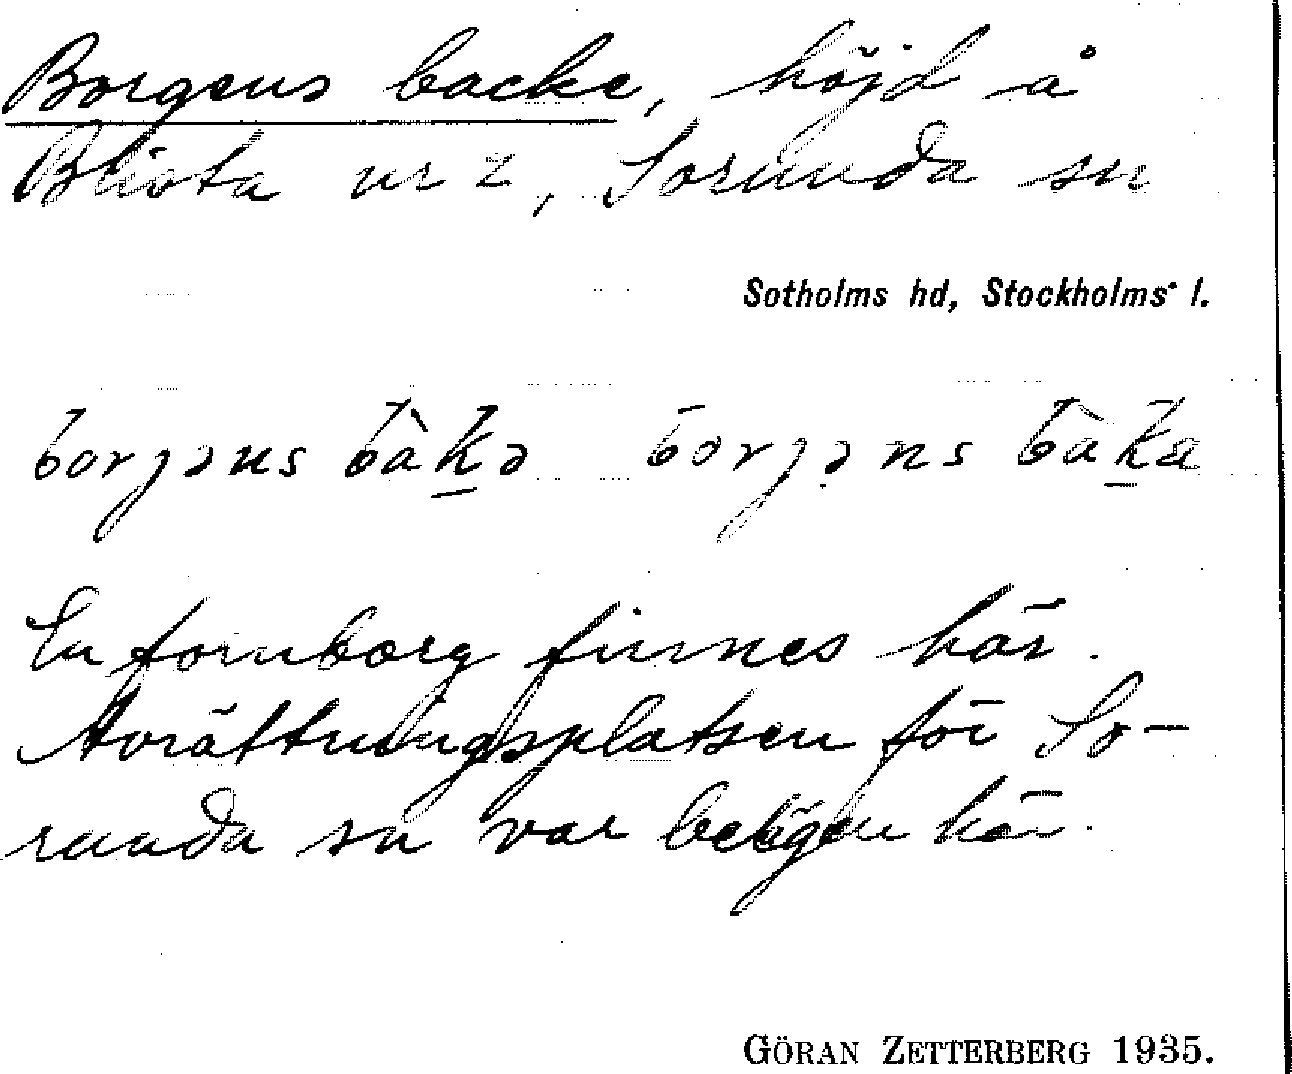 Borgens backe, höjd å
Blista nr 2, Sorunda sn
Sotholms hd, Stockholms l.
En fornborg finnes här.
Avrättningsplatsen för So-
runda sn var belägen här.
GÖRAN ZETTERBERG 1935.